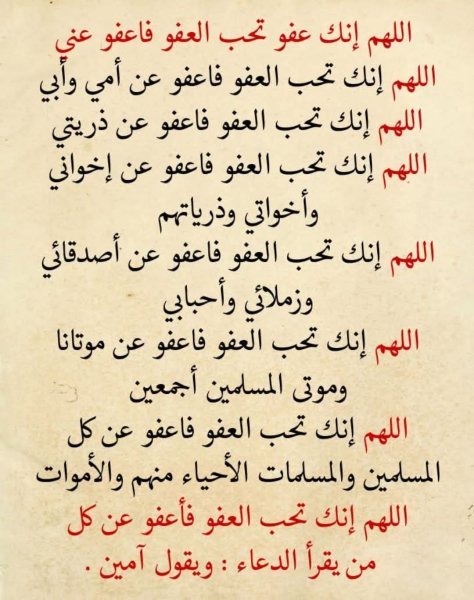 اللهم إنك عفو تحب العفو فاعفو عني
اللهم إنك تحب العفو فاعفو عن أمي وأبي
اللهم إنك تحب العفو فاعفو عن ذريتي
اللهم إنك تحب العفو فاعفو عن إخواني
وأخواتي وذرياتهم
اللهم إنك تحب العفو فاعفو عن أصدقائي
وزملائي وأحبابي
اللهم إنك تحب العفو فاعفو عن موتانا
وموتى المسلمين أجمعين
اللهم إنك تحب العفو فاعفو عن كل
المسلمين والمسلمات الأحياء منهم والأموات
اللهم إنك تحب العفو فأعفو عن كل
من يقرأ الدعاء : ويقول آمين .